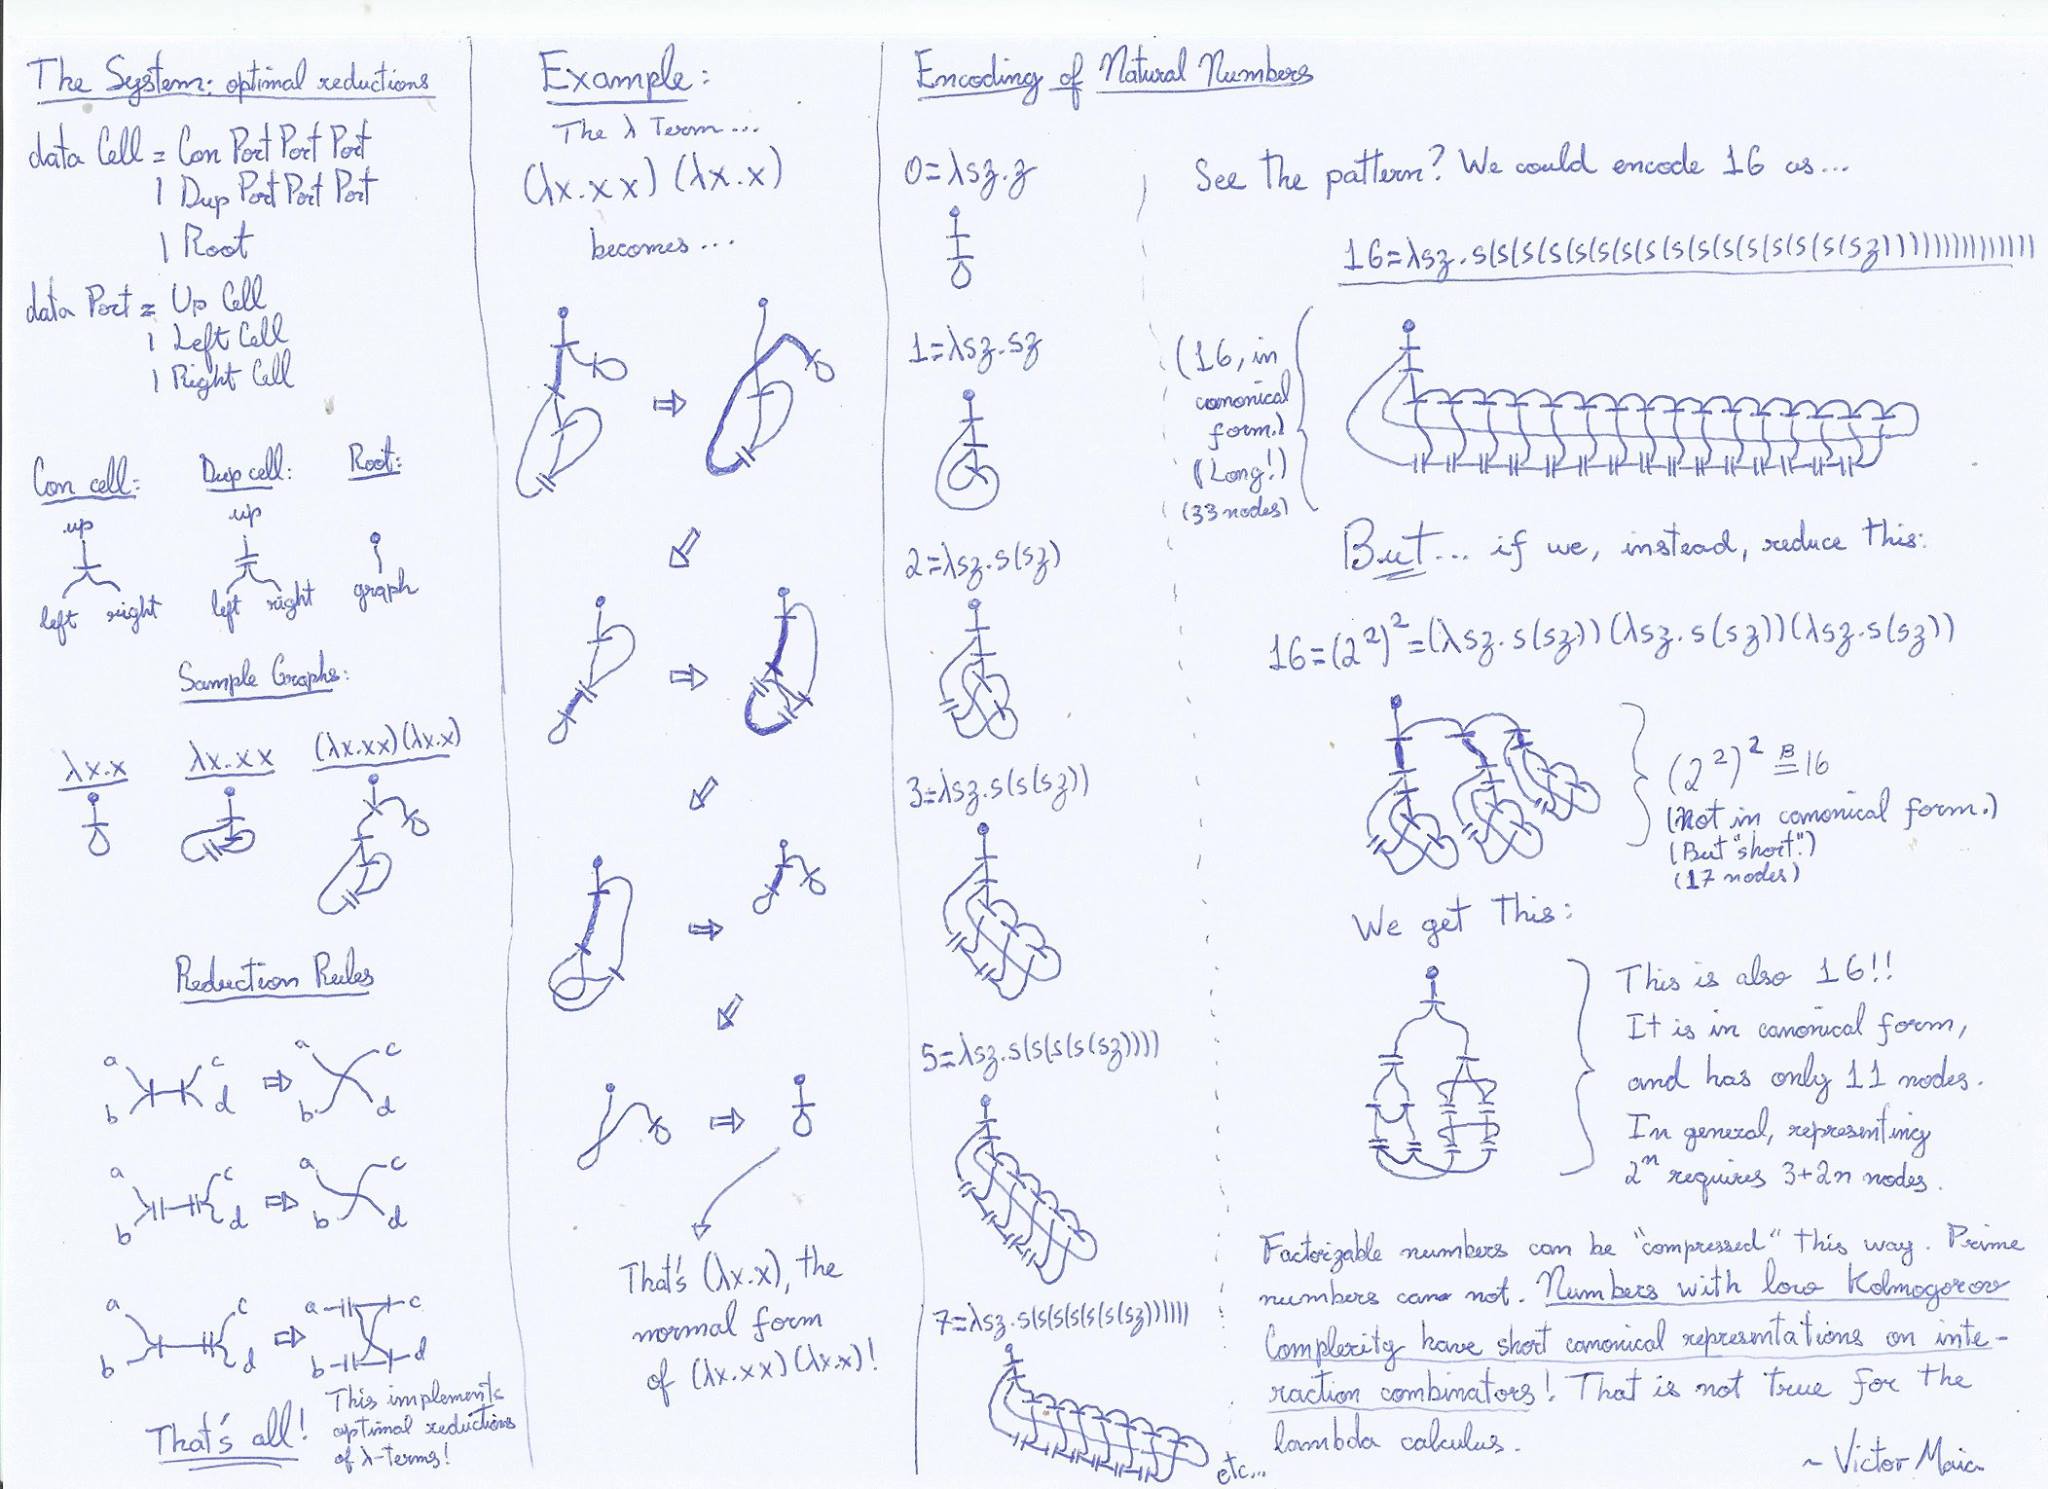 The System: optimal reductions
data Cell = Con Port Port Port
| Dup Port Port Port
| Root
data Port = Up Cell
| Left Cell
| Right Cell
Con cell:
up
left right
Dup cell:
up
left right
Root:
graph
Sample Graphs:
λx.x
λx.xx
(λx.xx)(λx.x)
Reduction Rules
a c
b d
⇒
a c
b d
a c
b d
⇒
a c
b d
a c
b d
⇒
a c
b d
That's all!
This implements
optimal reductions
of λ-terms!
Example:
The λ Term...
(λx.xx)(λx.x)
becomes...
That's (λx.x), the
normal form
of (λx.xx)(λx.x)!
Encoding of Natural Numbers
0=λsz.z
1=λsz.sz
2=λsz.s(sz)
3=λsz.s(s(sz))
5=λsz.s(s(s(s(sz))))
7=λsz.s(s(s(s(s(s(sz))))))
etc...
See the pattern? We could encode 16 as...
16=λsz.s(s(s(s(s(s(s(s(s(s(s(s(s(s(s(sz)))))))))))))))
(16, in
canonical
form.)
(Long!)
(33 nodes)
But... if we, instead, reduce this:
16=(2²)²=(λsz.s(sz))(λsz.s(sz))(λsz.s(sz))
(2²)² β= 16
(Not in canonical form.)
(But "short".)
(17 nodes)
We get This:
This is also 16!!
It is in canonical form,
and has only 11 nodes.
In general, representing
2ⁿ requires 3+2n nodes.
Factorizable numbers can be "compressed" this way. Prime
numbers can not. Numbers with low Kolmogorov
Complexity have short canonical representations on inte-
raction combinators! That is not true for the
lambda calculus.
~ Victor Maia